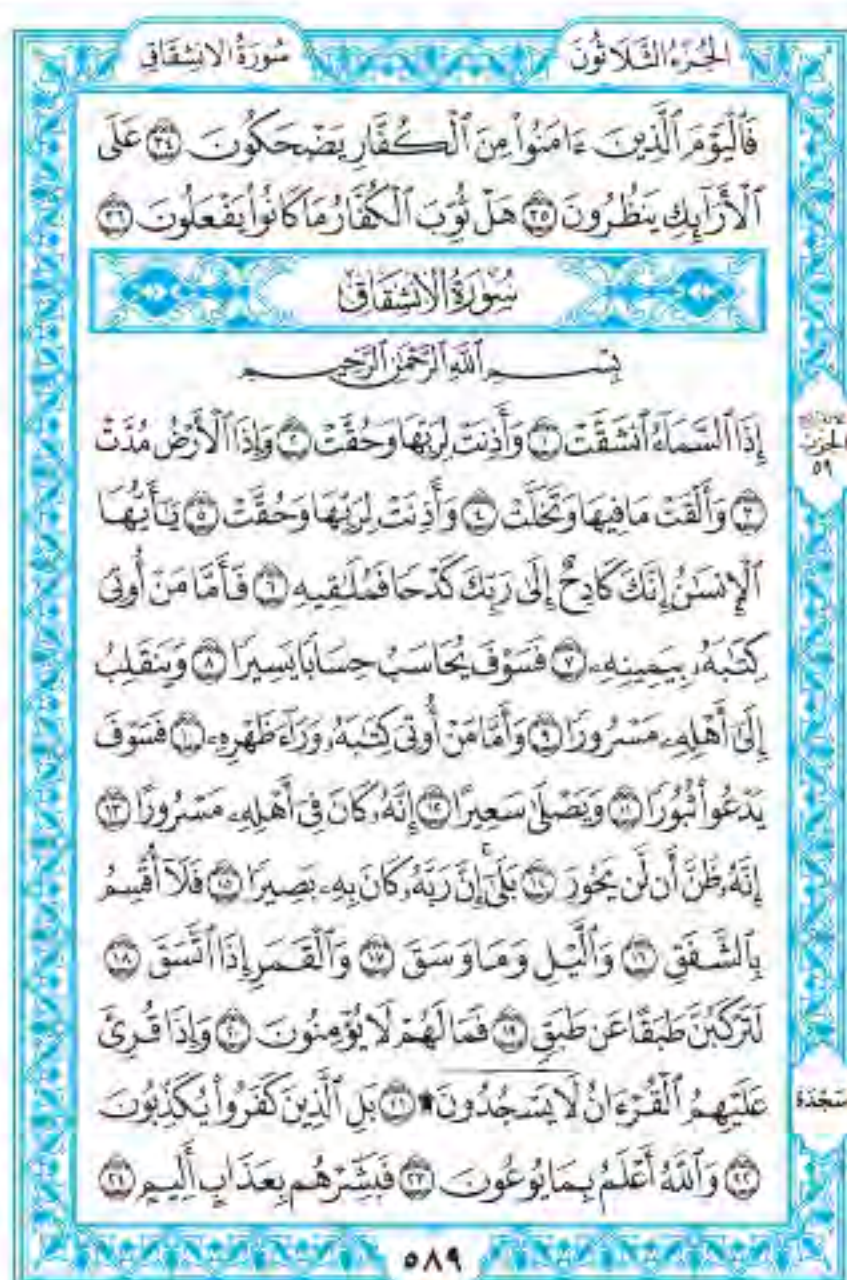 سُورَةُ الانشِقَاقِ
الجُزءُ الثَّلَاثُونَ
فَٱلْيَوْمَ ٱلَّذِينَ ءَامَنُوا۟ مِنَ ٱلْكُفَّارِ يَضْحَكُونَ ٣٤ عَلَى
ٱلْأَرَآئِكِ يَنظُرُونَ ٣٥ هَلْ ثُوِّبَ ٱلْكُفَّارُ مَا كَانُوا۟ يَفْعَلُونَ ٣٦
سُورَةُ الانشِقَاقِ
بِسْمِ ٱللَّهِ ٱلرَّحْمَٰنِ ٱلرَّحِيمِ
إِذَا ٱلسَّمَآءُ ٱنشَقَّتْ ١ وَأَذِنَتْ لِرَبِّهَا وَحُقَّتْ ٢ وَإِذَا ٱلْأَرْضُ مُدَّتْ
٣ وَأَلْقَتْ مَا فِيهَا وَتَخَلَّتْ ٤ وَأَذِنَتْ لِرَبِّهَا وَحُقَّتْ ٥ يَٰٓأَيُّهَا
ٱلْإِنسَٰنُ إِنَّكَ كَادِحٌ إِلَىٰ رَبِّكَ كَدْحًا فَمُلَٰقِيهِ ٦ فَأَمَّا مَنْ أُوتِىَ
كِتَٰبَهُۥ بِيَمِينِهِۦ ٧ فَسَوْفَ يُحَاسَبُ حِسَابًا يَسِيرًا ٨ وَيَنقَلِبُ
إِلَىٰٓ أَهْلِهِۦ مَسْرُورًا ٩ وَأَمَّا مَنْ أُوتِىَ كِتَٰبَهُۥ وَرَآءَ ظَهْرِهِۦ ١٠ فَسَوْفَ
يَدْعُوا۟ ثُبُورًا ١١ وَيَصْلَىٰ سَعِيرًا ١٢ إِنَّهُۥ كَانَ فِىٓ أَهْلِهِۦ مَسْرُورًا ١٣
إِنَّهُۥ ظَنَّ أَن لَّن يَحُورَ ١٤ بَلَىٰٓ إِنَّ رَبَّهُۥ كَانَ بِهِۦ بَصِيرًا ١٥ فَلَآ أُقْسِمُ
بِٱلشَّفَقِ ١٦ وَٱلَّيْلِ وَمَا وَسَقَ ١٧ وَٱلْقَمَرِ إِذَا ٱتَّسَقَ ١٨
لَتَرْكَبُنَّ طَبَقًا عَن طَبَقٍ ١٩ فَمَا لَهُمْ لَا يُؤْمِنُونَ ٢٠ وَإِذَا قُرِئَ
عَلَيْهِمُ ٱلْقُرْءَانُ لَا يَسْجُدُونَ ٢١ بَلِ ٱلَّذِينَ كَفَرُوا۟ يُكَذِّبُونَ
٢٢ وَٱللَّهُ أَعْلَمُ بِمَا يُوعُونَ ٢٣ فَبَشِّرْهُم بِعَذَابٍ أَلِيمٍ ٢٤
الحِزْب
٥٩
سَجْدَة
٥٨٩